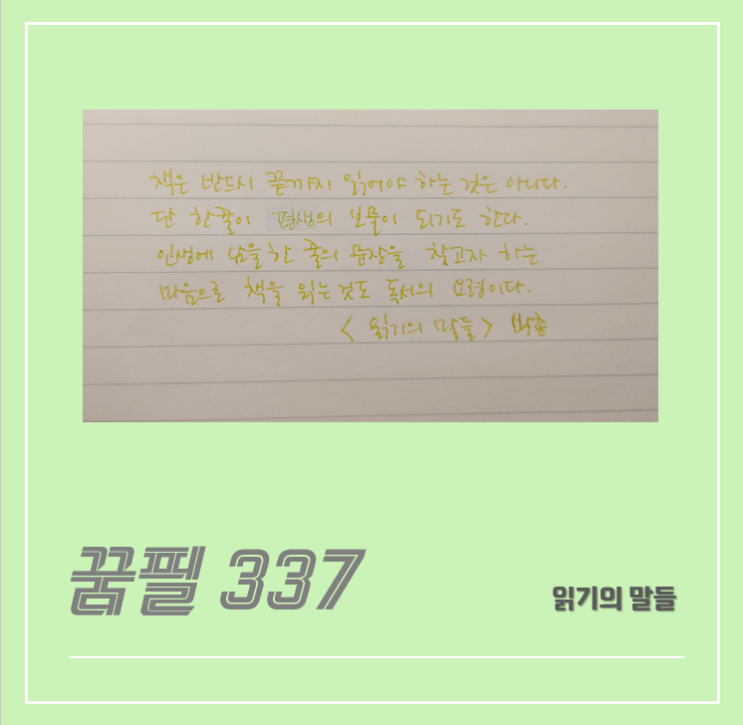 책은 반드시 끝까지 읽어야 하는 것은 아니다.
단 한 줄이 평생의 보물이 되기도 한다.
인생에 남을 한 줄의 문장을 찾고자 하는
마음으로 책을 읽는 것도 독서의 요령이다.
<읽기의 말들> 박총
꿈필 337
읽기의 말들